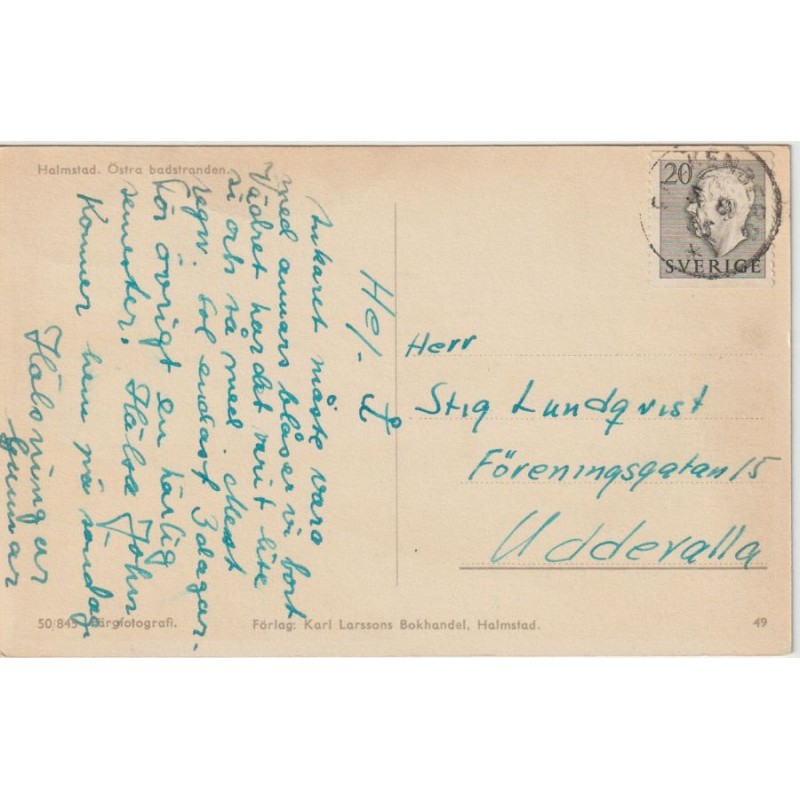 Halmstad. Östra badstranden.
20
SVERIGE
Hej.
Ankaret måste vara
med annars blåser vi bort
Vädret har det varit lite
si och så med. Mest
regn. Sol endast 3 dagar.
För övrigt en härlig
semester. Hälsa John
Kommer hem på söndag.
Hälsningar
Gunnar
Herr
Stig Lundqvist
Föreningsgatan 15
Uddevalla
50/845 Färgfotografi.
Förlag: Karl Larssons Bokhandel, Halmstad.
49